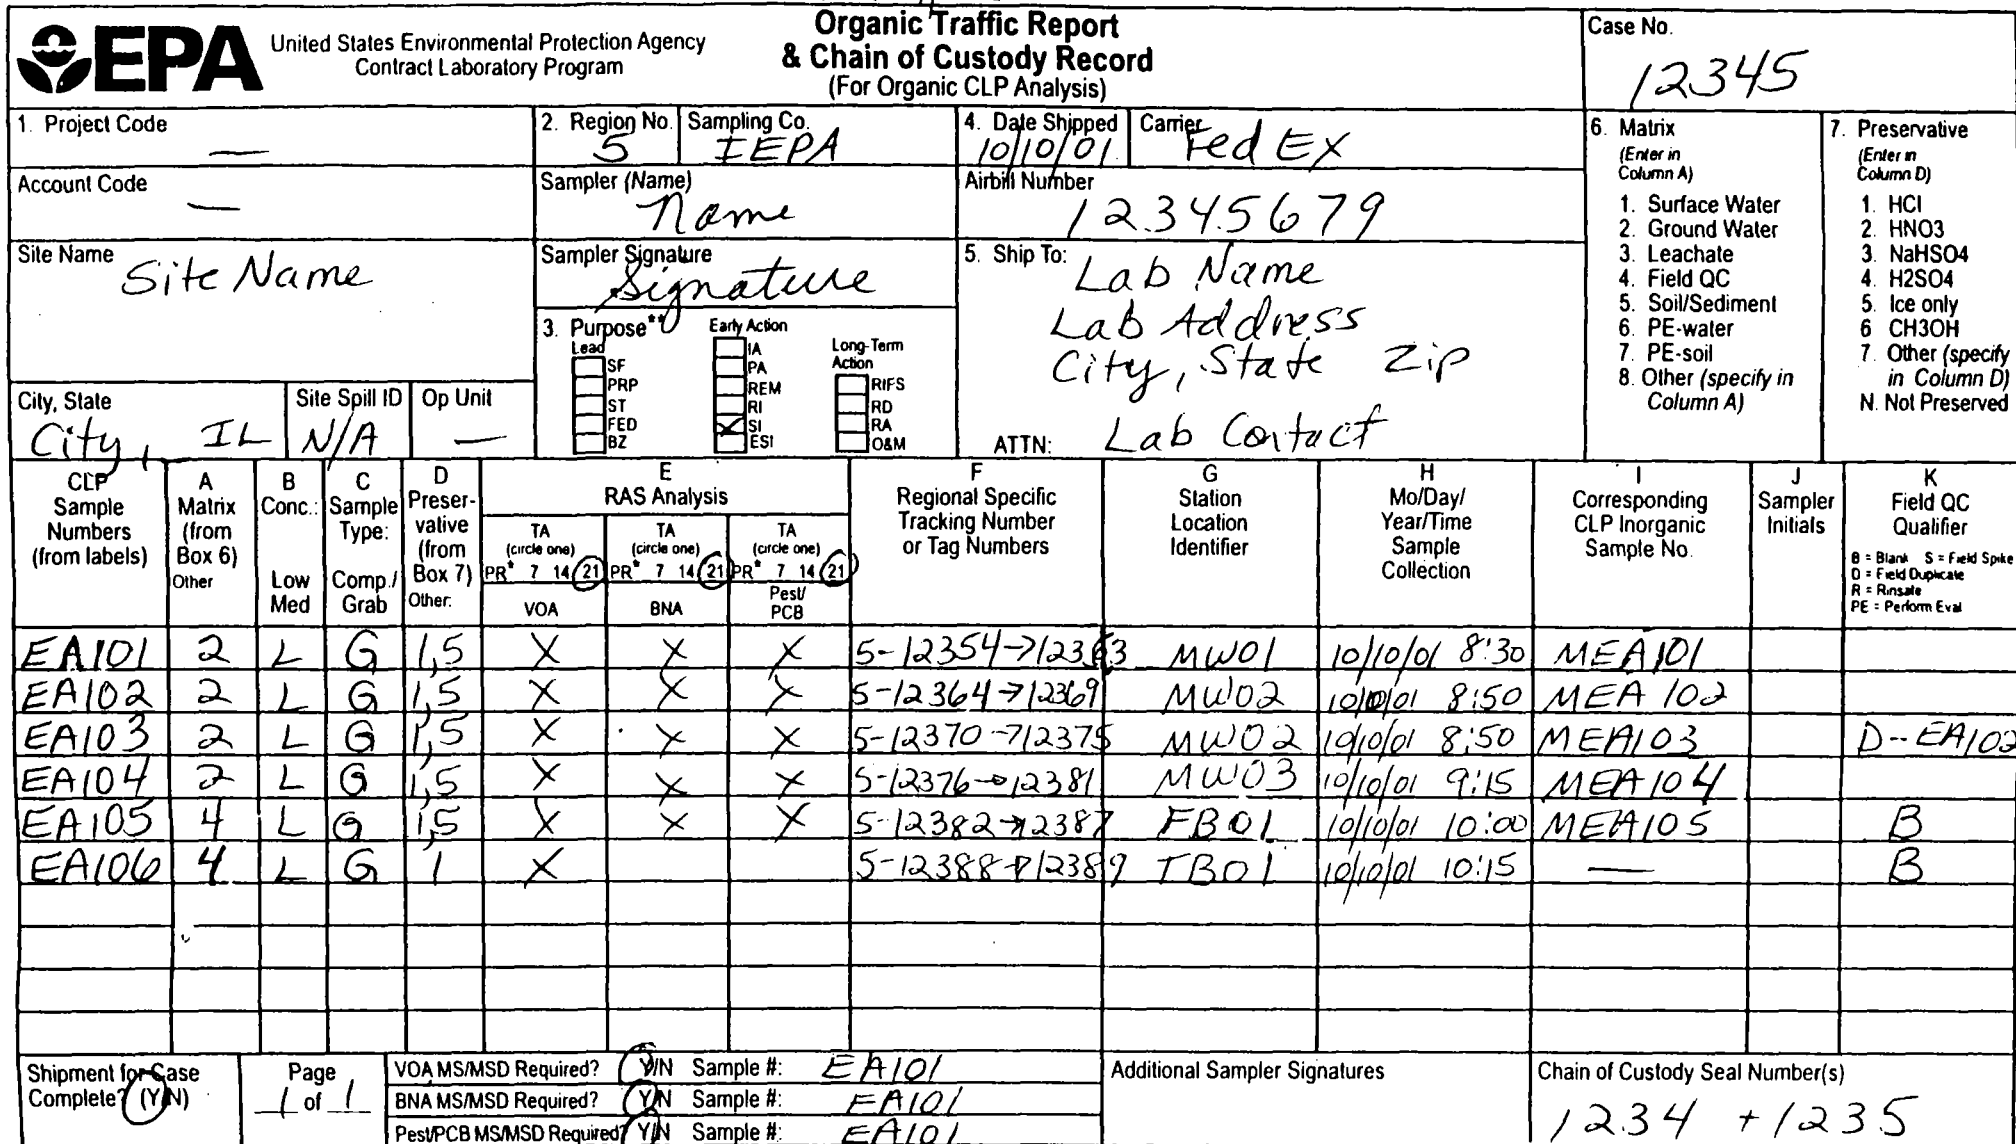 EPA United States Environmental Protection Agency
Contract Laboratory Program
Organic Traffic Report
& Chain of Custody Record
(For Organic CLP Analysis)
Case No.
12345
1. Project Code
—
Account Code
—
Site Name
Site Name
City, State
City, IL
Site Spill ID
N/A
Op Unit
—
2. Region No.
5
Sampling Co.
IEPA
Sampler (Name)
Name
Sampler Signature
Signature
3. Purpose**
Lead
SF
PRP
ST
FED
BZ
Early Action
IA
PA
REM
RI
X SI
ESI
Long-Term
Action
RIFS
RD
RA
O&M
4. Date Shipped
10/10/01
Carrier
Fed Ex
Airbill Number
12345679
5. Ship To:
Lab Name
Lab Address
City, State Zip
ATTN: Lab Contact
6. Matrix
(Enter in
Column A)
1. Surface Water
2. Ground Water
3. Leachate
4. Field QC
5. Soil/Sediment
6. PE-water
7. PE-soil
8. Other (specify in
Column A)
7. Preservative
(Enter in
Column D)
1. HCl
2. HNO3
3. NaHSO4
4. H2SO4
5. Ice only
6 CH3OH
7. Other (specify
in Column D)
N. Not Preserved
CLP
Sample
Numbers
(from labels)
A
Matrix
(from
Box 6)
Other
B
Conc.:
Low
Med
C
Sample
Type:
Comp./
Grab
D
Preser-
vative
(from
Box 7)
Other:
E
RAS Analysis
TA
(circle one)
PR* 7 14 21
VOA
TA
(circle one)
PR* 7 14 21
BNA
TA
(circle one)
PR* 7 14 21
Pest/
PCB
F
Regional Specific
Tracking Number
or Tag Numbers
G
Station
Location
Identifier
H
Mo/Day/
Year/Time
Sample
Collection
I
Corresponding
CLP Inorganic
Sample No.
J
Sampler
Initials
K
Field QC
Qualifier
B = Blank S = Field Spike
D = Field Duplicate
R = Rinsate
PE = Perform Eval
EA101 2 L G 1,5 X X X 5-12354→12363 MW01 10/10/01 8:30 MEA101
EA102 2 L G 1,5 X X X 5-12364→12369 MW02 10/10/01 8:50 MEA 102
EA103 2 L G 1,5 X X X 5-12370→12375 MW02 10/10/01 8:50 MEA103 D--EA102
EA104 2 L G 1,5 X X X 5-12376→12381 MW03 10/10/01 9:15 MEA104
EA105 4 L G 1,5 X X X 5-12382→12387 FB01 10/10/01 10:00 MEA105 B
EA106 4 L G 1 X 5-12388→12389 TB01 10/10/01 10:15 — B
Shipment for Case
Complete? (Y/N)
Page
1 of 1
VOA MS/MSD Required? Y/N Sample #: EA101
BNA MS/MSD Required? Y/N Sample #: EA101
Pest/PCB MS/MSD Required? Y/N Sample #: EA101
Additional Sampler Signatures
Chain of Custody Seal Number(s)
1234 + 1235